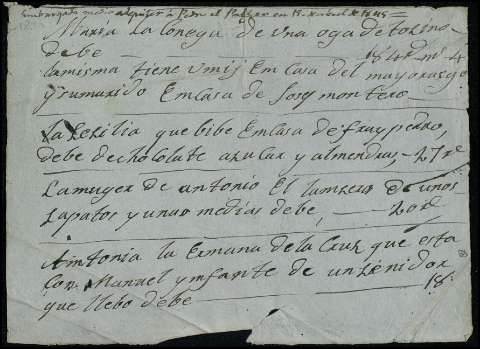 Maria la Conega de una oga de tozino
debe 184 rs mrs 4
la misma tiene vmij Em Casa del mayorasgo
y su marido Em Casa de Josq montero
La Sesilia que bibe Em Casa de fray pedro,
debe de chocolate azucar y almendras, 27 rs
La muger de antonio El lumbrero de unos
zapatos y unas medias debe, 20 rs
Antonia la Ermana de la Cruz que esta
con Manuel ymfante de un Zenidor
que llebo debe 18